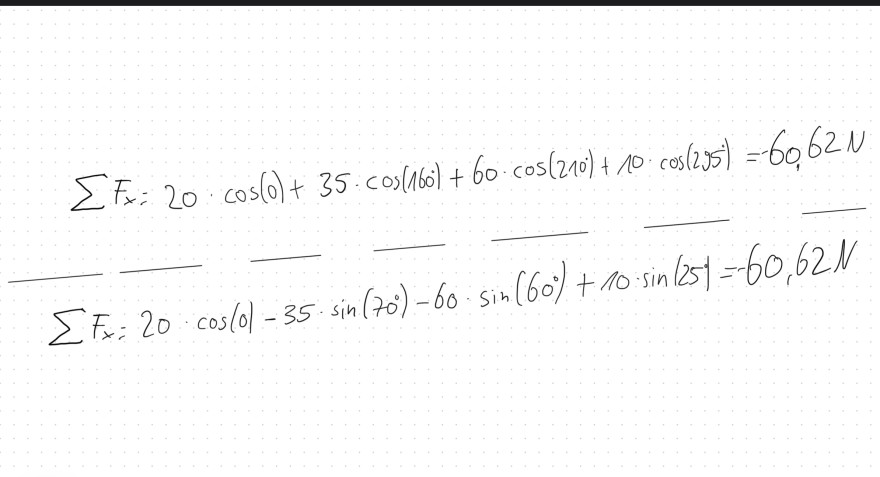 ∑ Fx = 20 · cos(0) + 35 · cos(160°) + 60 · cos(210°) + 10 · cos(295°) = -60,62 N
∑ Fx = 20 · cos(0) - 35 · sin(70°) - 60 · sin(60°) + 10 · sin(25°) = -60,62 N